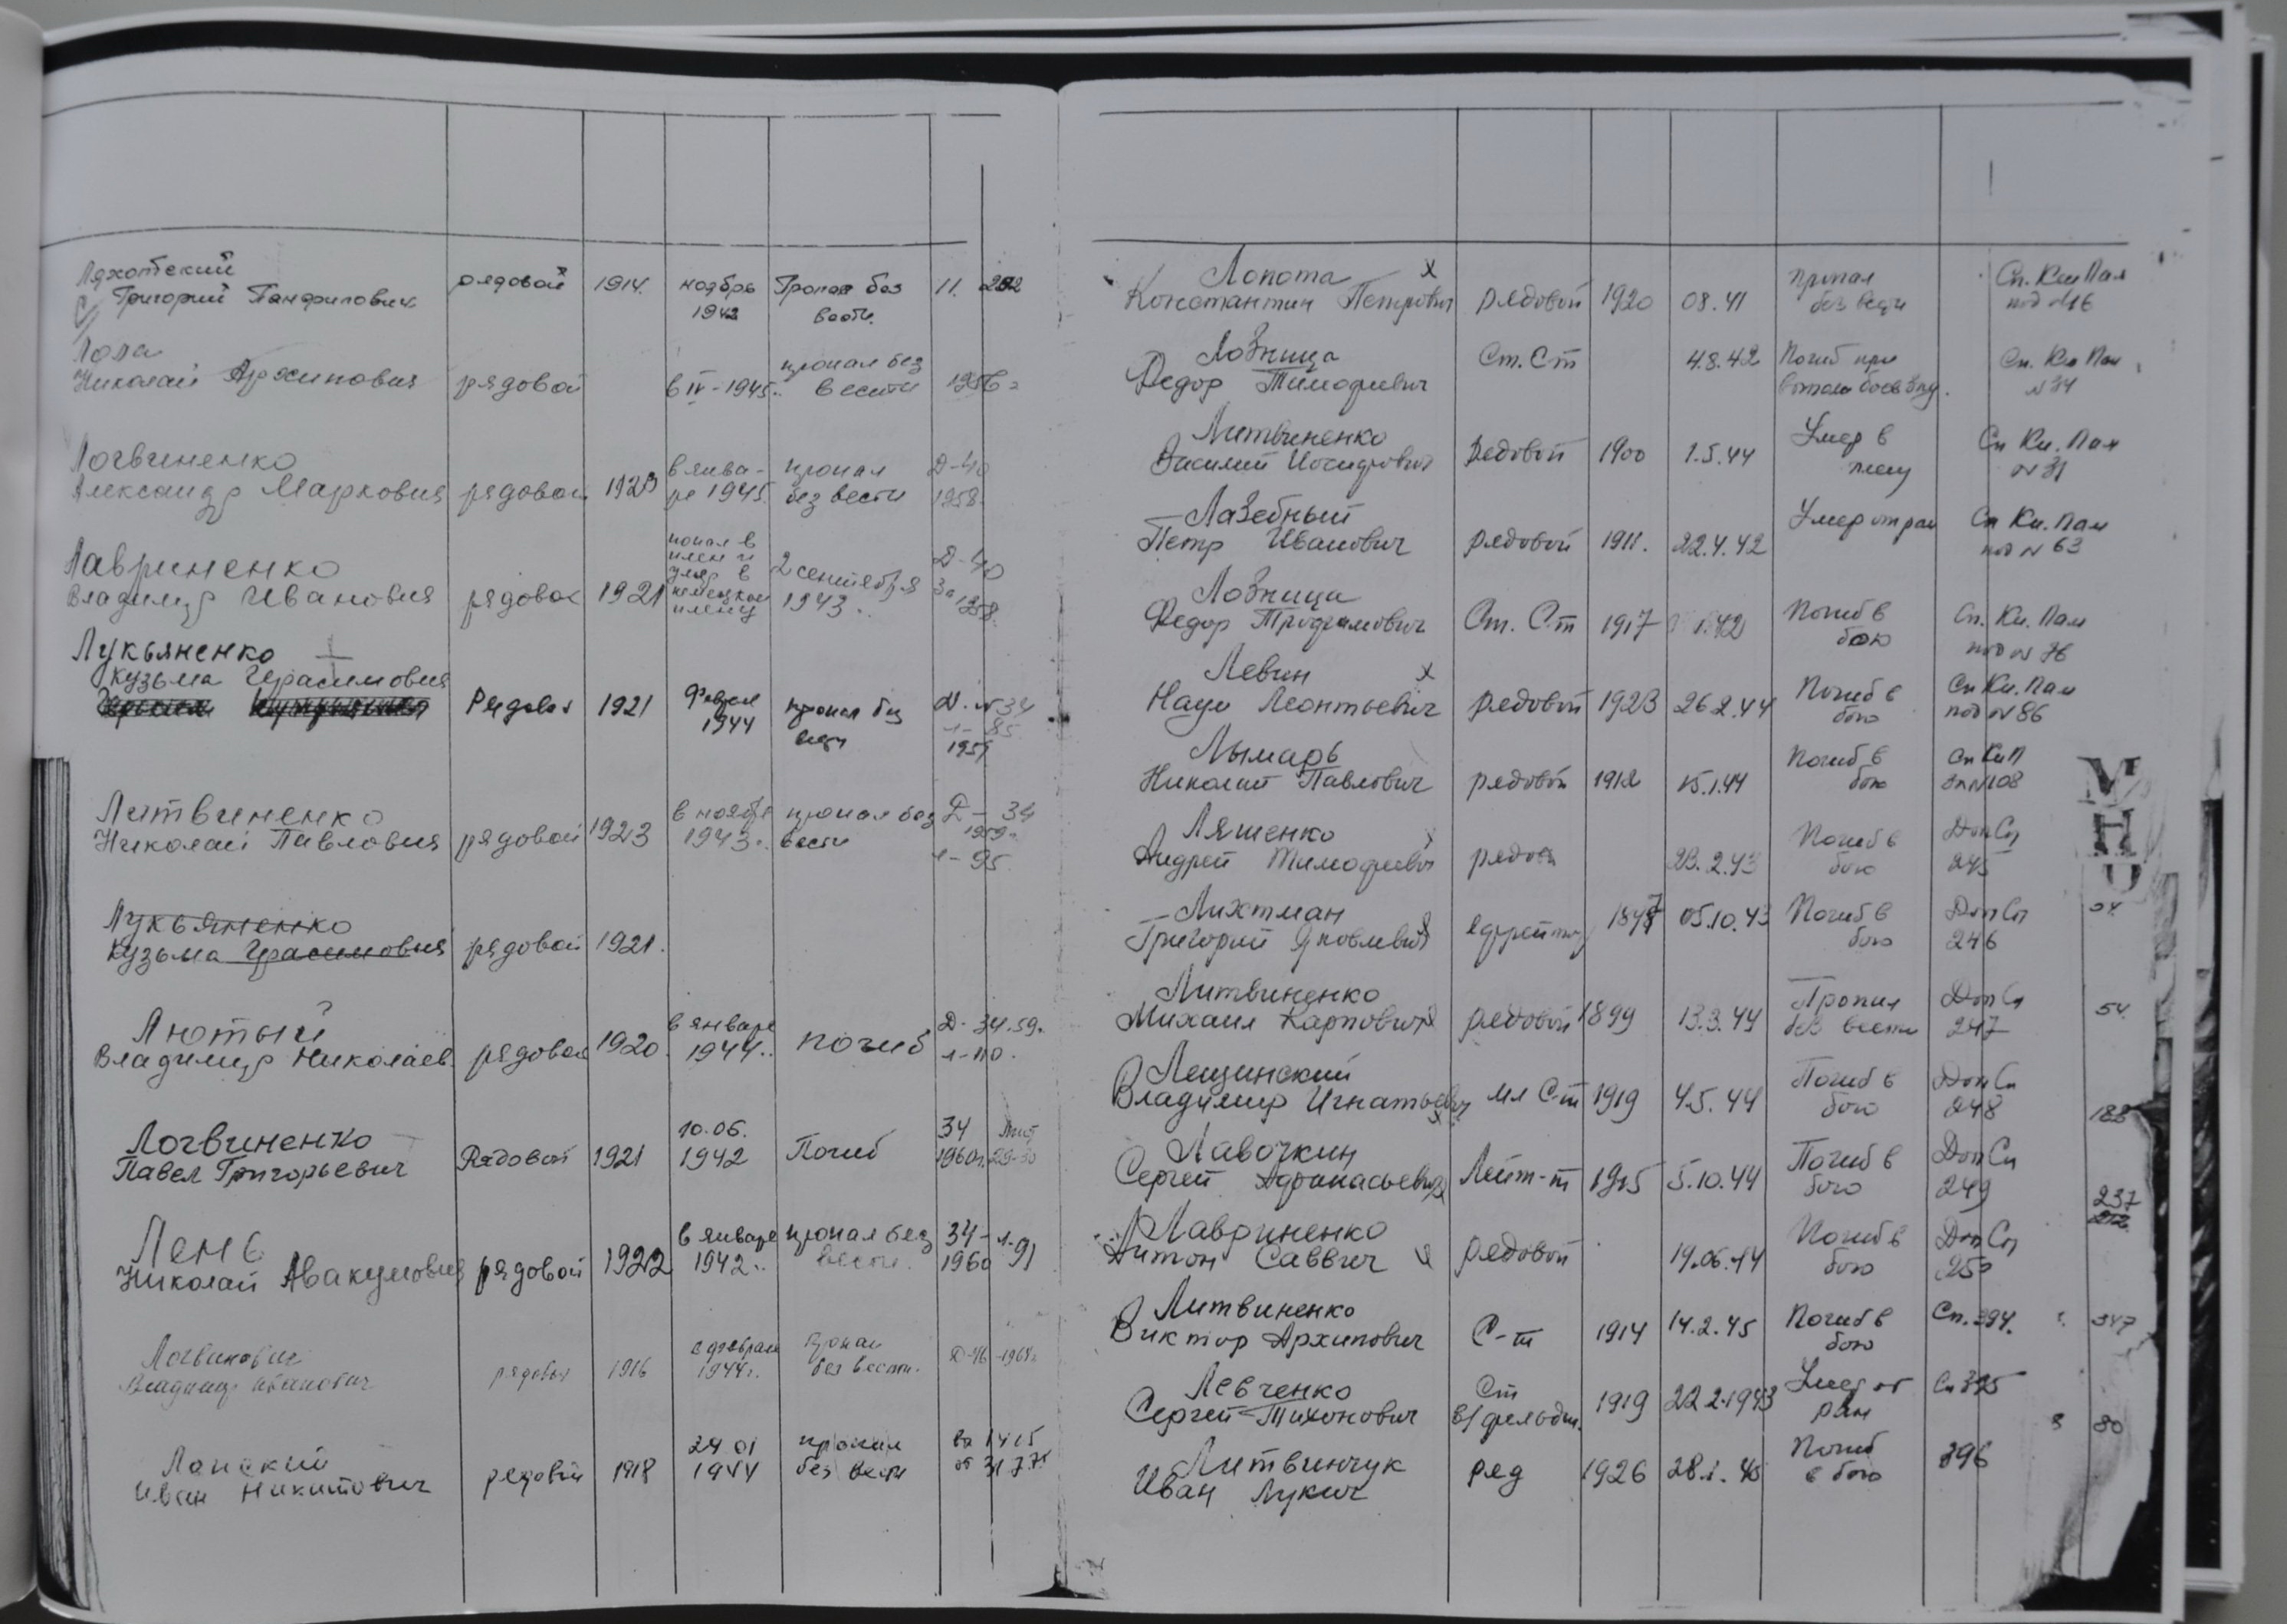 Ляхотский
Григорий Панфилович рядовой 1914. ноябрь 1942 Пропал без вести. 11.
Лола
Николай Архипович рядовой в IV-1945г. пропал без вести 1956г
Логвиненко
Александр Маркович рядовой 1923 в январе 1945. пропал без вести Д-40 1958.
Лавриненко
Владимир Иванович рядовой 1921 попал в плен и умер в немецком плену 2 сентября 1943г. Д-40 За 1958.
Лукьяненко
Кузьма Герасимович
Рядовой 1921 Феврале 1944 пропал без вести Д. №34 л-85 1959
Литвиненко
Николай Павлович рядовой 1923 в ноябре 1943г. пропал без вести Д-34 1959г. л-95.
Лукьяненко
Кузьма Герасимович рядовой 1921.
Лютый
Владимир Николаев. рядовой 1920. в январе 1944г. погиб Д-34.59г. л-110.
Логвиненко
Павел Григорьевич Рядовой 1921 10.06. 1942 Погиб 34 1960г.
Лень
Николай Авакумович рядовой 1922 в январе 1942г. пропал без вести. 34-л-91 1960
Логвинович
Владимир Иванович рядовой 1916 в феврале 1944г. пропал без вести. Д-46-196
Ланский
Иван Никитович рядовой 1918 24 01 1944 пропал без вести
Лопота х
Константин Петрович рядовой 1920 08.41 Пропал без вести Сп. Кн Пам под №16
Лозница
Федор Тимофеевич Ст. С-т 4.8.42 Погиб при Сп. Кн Пам №34
Литвиненко
Василий Рядовой 1900 1.5.44 Умер в плену Сп Кн. Пам №31
Лазебный
Петр Иванович рядовой 1911. 22.4.42 Умер от ран Сп Кн. Пам под №63
Лозница
Федор Трофимович Ст. С-т 1917 1.42 Погиб в бою Сп. Кн. Пам под №76
Левин х
Наум Леонтьевич рядовой 1923 26.2.44 Погиб в бою Сп Кн. Пам под №86
Лымарь
Николай Павлович рядовой 1912 15.1.44 Погиб в бою Сп Кн П №108
Ляшенко х
Андрей Тимофеевич рядов 23.2.43 Погиб в бою Доп Сп 245
Лихтман
Григорий Яковлевич ефрейтор 05.10.43 Погиб в бою Доп Сп 246
Литвиненко
Михаил Карпович рядовой 1899 13.3.44 Пропал без вести Доп Сп 247 54.
Лещинский
Владимир Игнатьевич мл С-т 1919 4.5.44 Погиб в бою Доп Сп 248 188
Лавочкин
Сергей Афанасьевич Лейт-т 1915 5.10.44 Погиб в бою Доп Сп 249 237
Лавриненко
Антон Саввич х рядовой 19.06.44 Погиб в бою Доп Сп 250
Литвиненко
Виктор Архипович С-т 1914 14.2.45 Погиб в бою Сп. 394. 347
Левченко
Сергей Тихонович Ст в/фельдш. 1919 22.2.1943 Умер от ран Сп 395 80
Литвинчук
Иван Лукич ряд 1926 28.1.45 Погиб в бою 396